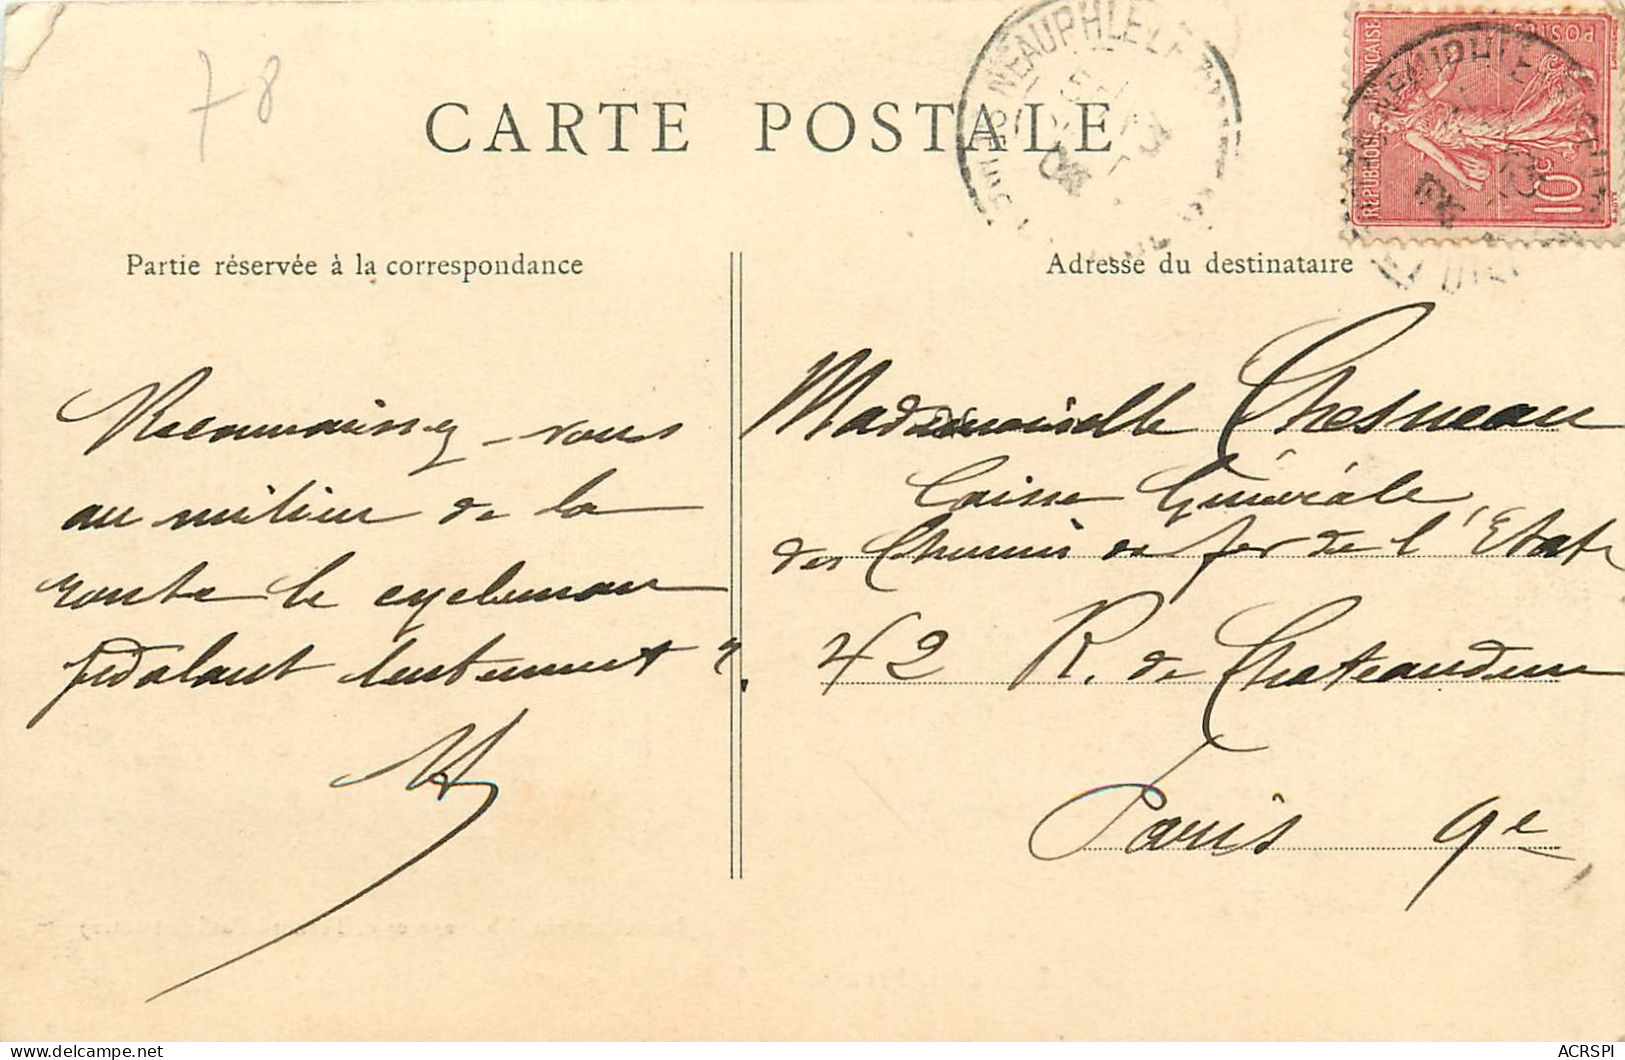 78
CARTE POSTALE
NEAUPHLE LE
05
RÉPUBLIQUE FRANÇAISE
POSTES
10c
Partie réservée à la correspondance
Adresse du destinataire
Reconnaissez-vous
au milieu de la
route le cycleman
pédalant lentement ?
Mademoiselle Chesneau
Caisse Générale
des Chemins de fer de l'Etat
42 R. de Chateaudun
Paris 9e
ACRSPI